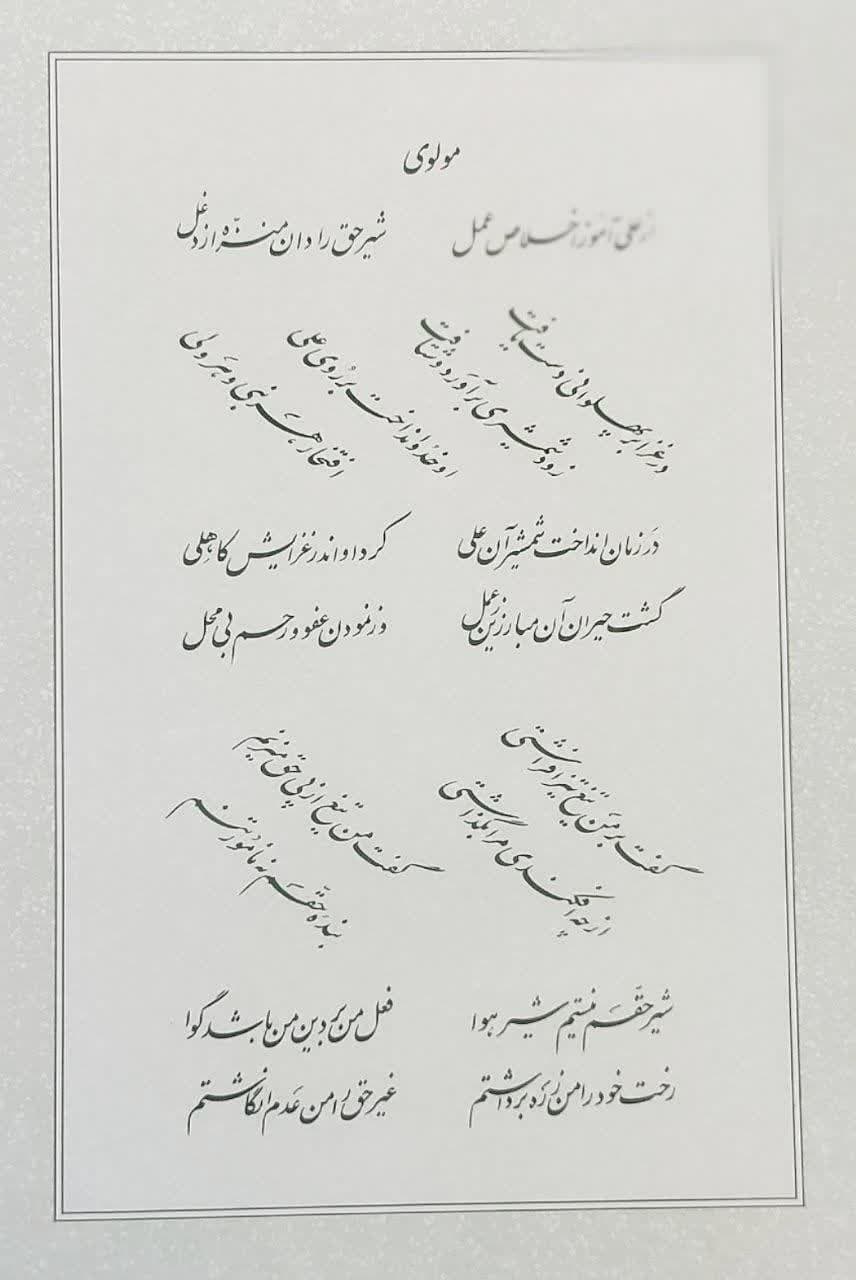 مولوی
از علی آموز اخلاص عمل شیر حق را دان منزّه از دغل
در غزا بر پهلوانی دست یافت
زود شمشیری برآورد و شتافت
او خدو انداخت بر رُوی علی
افتخار هَر نبی و هَر ولی
دَر زمان انداخت شمشیر آن علی کرد او اندر غزایش کاهِلی
گشت حیران آن مبارز زین عمل وز نمودن عفو و رحم بی محل
گفت بر مَن تیغ تیز افراشتی
از چه افکندی مرا بگذاشتی
گفت من تیغ از پی حق میزنم
بنده حقّم نه مأمور تنم
شیر حقّم نیستم شیر هوا فعل من بر دین من باشد گوا
رخت خود را من ز رَه برداشتم غیر حق را من عَدم انگاشتم